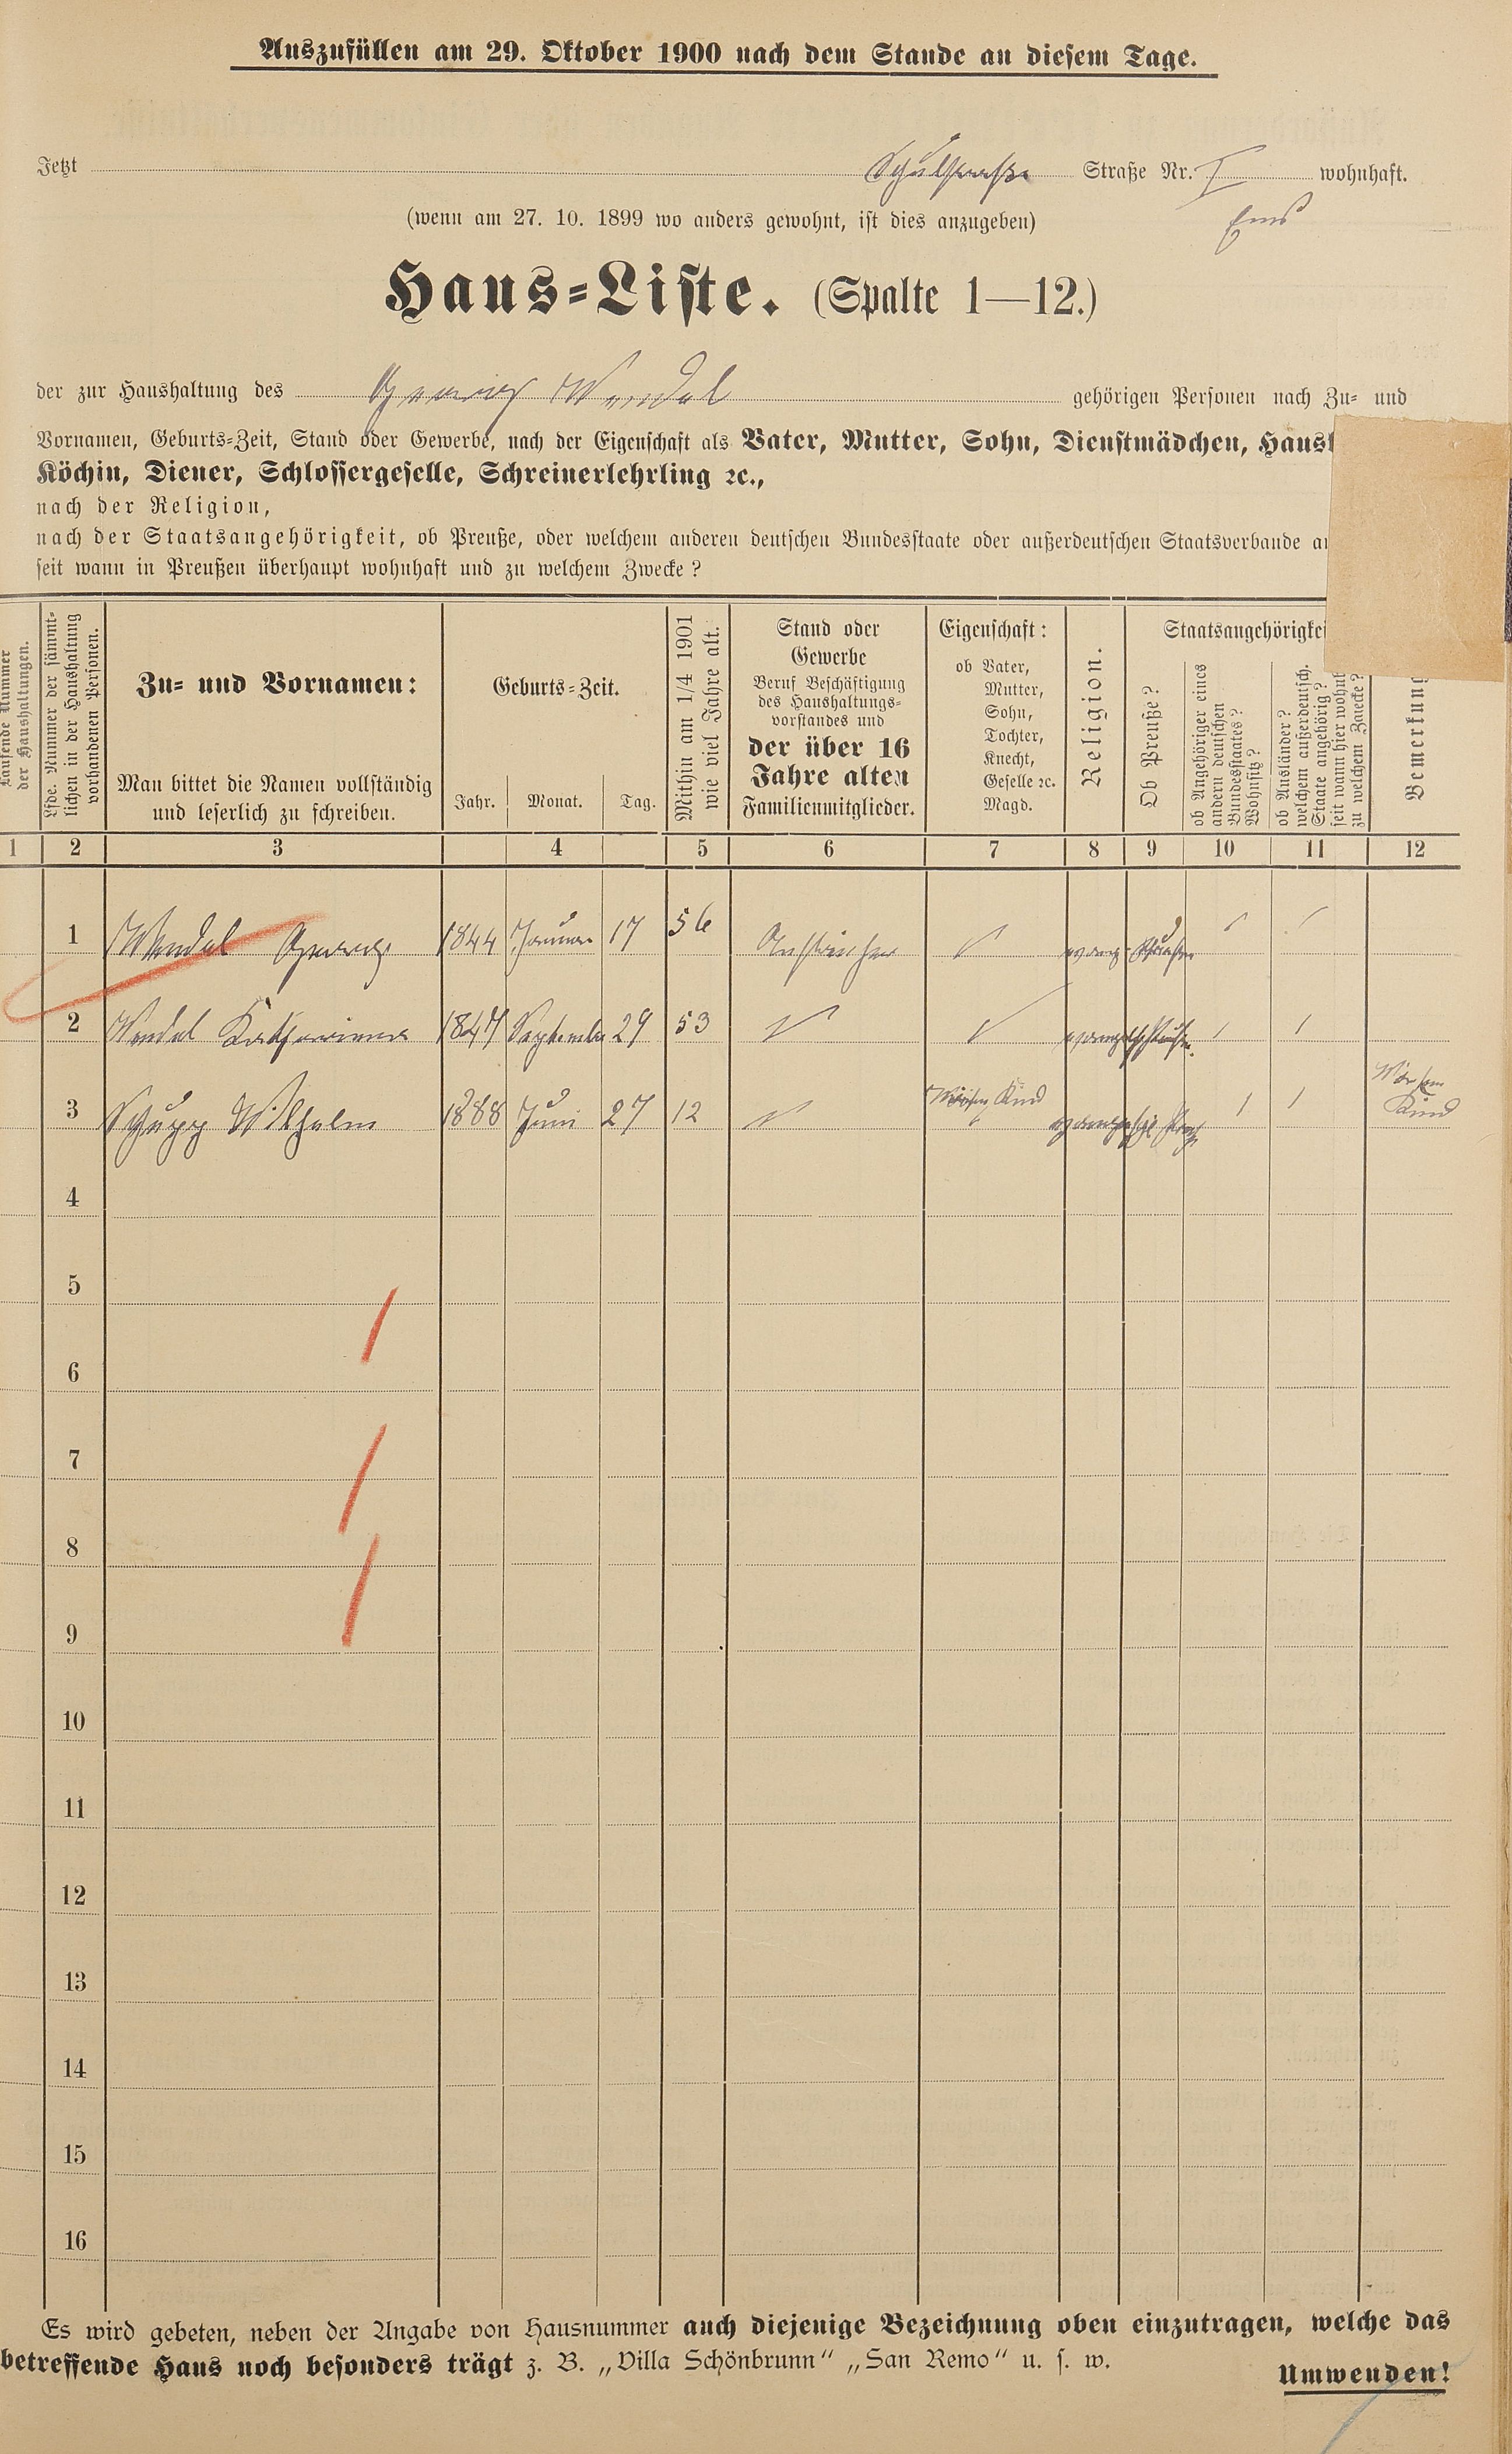 Auszufüllen am 29. Oktober 1900 nach dem Stande an diesem Tage.
Jetzt Schulstraße Straße Nr. I wohnhaft.
(wenn am 27. 10. 1899 wo anders gewohnt, ist dies anzugeben) Ems
Haus=Liste. (Spalte 1—12.)
der zur Haushaltung des Georg Wendel gehörigen Personen nach Zu= und
Vornamen, Geburts=Zeit, Stand oder Gewerbe, nach der Eigenschaft als Vater, Mutter, Sohn, Dienstmädchen,
Köchin, Diener, Schlossergeselle, Schreinerlehrling ꝛc.,
nach der Religion,
nach der Staatsangehörigkeit, ob Preuße, oder welchem anderen deutschen Bundesstaate oder außerdeutschen Staatsverbande
seit wann in Preußen überhaupt wohnhaft und zu welchem Zwecke?
Laufende Nummer
der Haushaltungen.
Lfde. Nummer der sämmt=
lichen in der Haushaltung
vorhandenen Personen.
Zu= und Vornamen:
Man bittet die Namen vollständig
und leserlich zu schreiben.
Geburts=Zeit.
Jahr. Monat. Tag.
Mithin am 1/4 1901
wie viel Jahre alt.
Stand oder
Gewerbe
Beruf Beschäftigung
des Haushaltungs=
vorstandes und
der über 16
Jahre alten
Familienmitglieder.
Eigenschaft:
ob Vater,
Mutter,
Sohn,
Tochter,
Knecht,
Geselle ꝛc.
Magd.
Religion.
Staatsangehörigkei
Ob Preuße?
ob Angehöriger eines
andern deutschen
Bundesstaates?
Wohnsitz?
ob Ausländer?
welchem außerdeutsch.
Staate angehörig?
seit wann hier wohnt
zu welchem Zwecke?
Bemerkung
1 2 3 4 5 6 7 8 9 10 11 12
1 Wendel Georg 1844 Januar 17 56 Anstreicher evang. Preußen
2 Wendel Katharina 1847 September 29 53
3 Schupp Wilhelm 1888 Juni 27 12 Kind Kind
4
5
6
7
8
9
10
11
12
13
14
15
16
Es wird gebeten, neben der Angabe von Hausnummer auch diejenige Bezeichnung oben einzutragen, welche das
betreffende Haus noch besonders trägt z. B. „Villa Schönbrunn“ „San Remo“ u. s. w.
Umwenden!